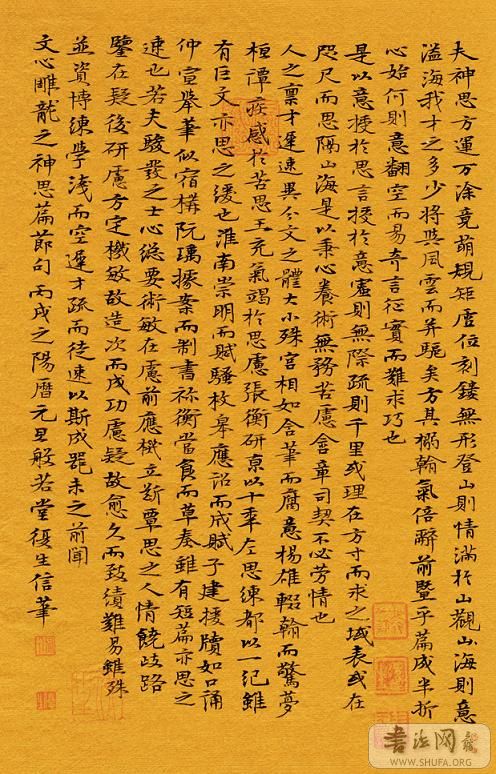 夫神思方運万涂竟萌規矩虛位刻鏤無形登山則情滿於山觀山海則意
溢海我才之多少將與風雲而并驅矣方其搦翰氣倍辭前暨乎篇成半折
心始何則意翻空而易奇言征實而難求巧也
是以意授於思言授於意密則無際疏則千里或理在方寸而求之域表或在
咫尺而思隔山海是以秉心養術無務苦慮含章司契不必勞情也
人之稟才遲速異分文之體大小殊宮相如含筆而腐意楊雄輟翰而驚夢
桓譚疾感於苦思王充氣竭於思慮張衡研京以十年左思練都以一紀雖
有巨文亦思之緩也淮南崇明而賦騷枚皋應詔而成賦子建援牘如口誦
仲宣舉筆似宿構阮瑀據案而制書祢衡當食而草奏雖有短篇亦思之
速也若夫駿發之士心總要術敏在慮前應機立斷覃思之人情饒歧路
鑒在疑後研慮方定機敏故造次而成功慮疑故愈久而致績難易雖殊
並資博練學淺而空遲才疏而徒速以斯成器未之前聞
文心雕龍之神思篇節句 丙戌之陽曆元旦般若堂復生信筆
書法网
WWW.SHUFA.ORG